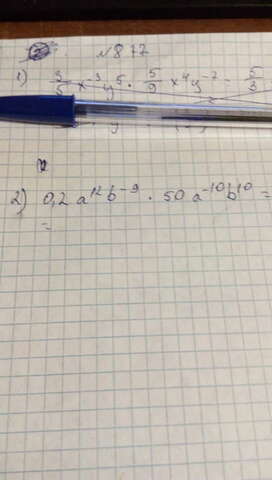 № 877
1) 3/5 x⁻³ y⁵ · 5/9 x⁴ y⁻² - 5/3
2) 0,2 a¹² b⁻⁹ · 50 a⁻¹⁰ b¹⁰ =
=